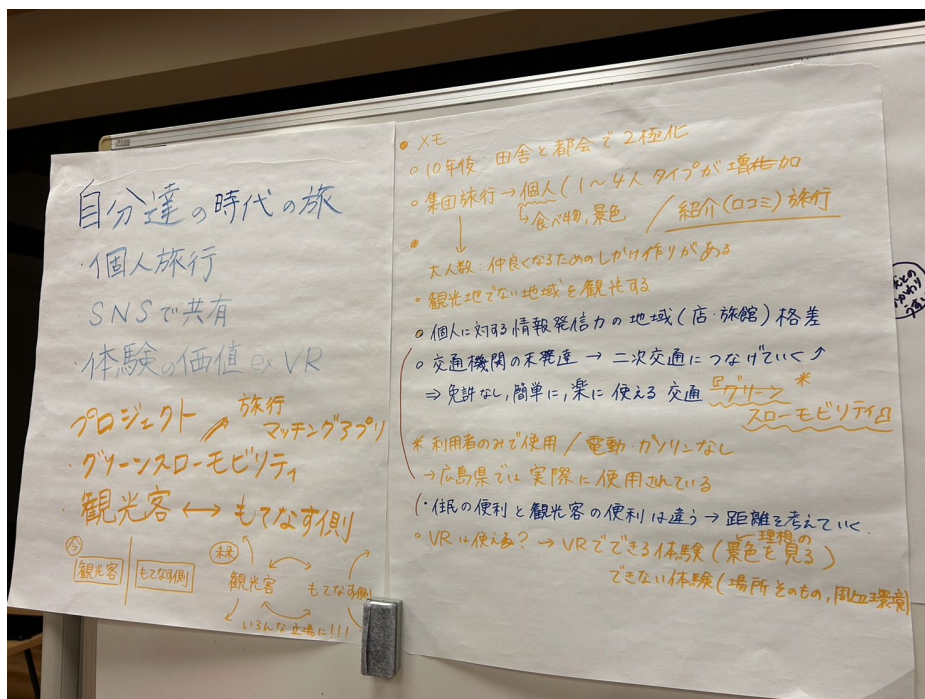 自分達の時代の旅
・個人旅行
SNSで共有
・体験の価値 ex VR
プロジェクト
旅行
マッチングアプリ
・グリーンスローモビリティ
観光客 ↔ もてなす側
今
観光客
もてなす側
未来
観光客
もてなす側
いろんな立場に!!!
• メモ
○ 10年後 田舎と都会で2極化
○ 集団旅行→個人(1〜4人タイプが増加
↳食べ物,景色
/ 紹介(口コミ)旅行
大人数:仲良くなるためのしかけ作りがある
○ 観光地でない地域を観光する
○ 個人に対する情報発信力の地域(店・旅館)格差
○ 交通機関の未発達 → 二次交通につなげていく
⇒ 免許なし,簡単に,楽に使える交通『グリーン*
スローモビリティ』
* 利用者のみで使用 / 電動・ガソリンなし
→広島県では実際に使用されている
(・住民の便利と観光客の便利は違う → 距離を考えていく
理想の
○ VRは使える? → VRでできる体験(景色を見る)
できない体験(場所そのもの,周辺環境)